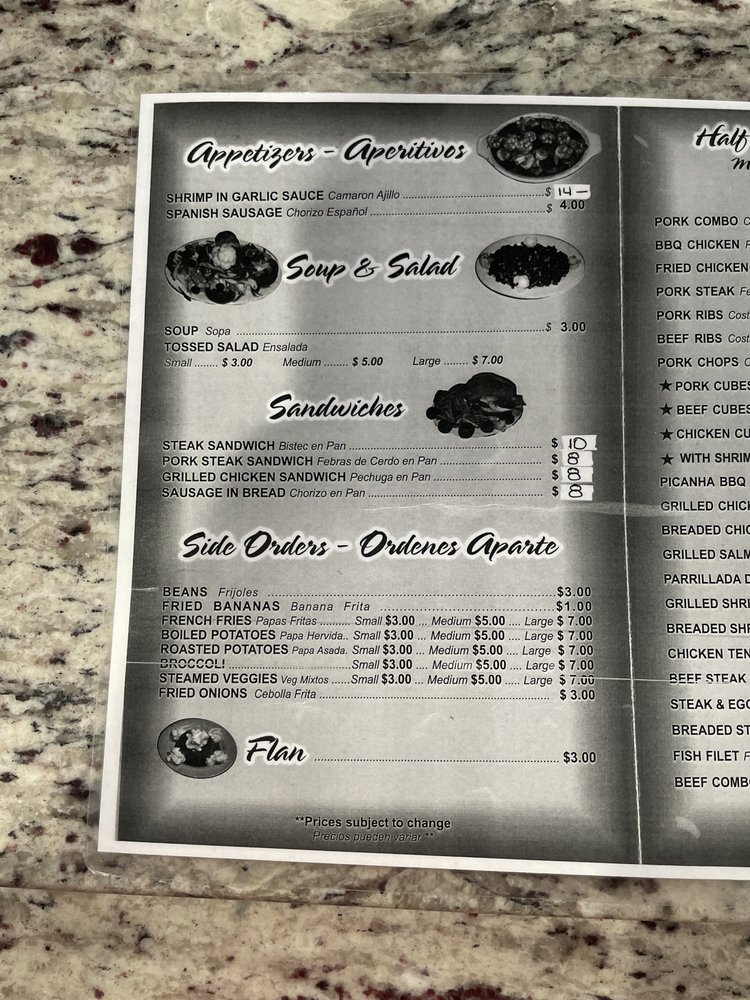 Appetizers - Aperitivos
SHRIMP IN GARLIC SAUCE Camaron Ajillo ........ $ 14 —
SPANISH SAUSAGE Chorizo Español ........ $ 4.00
Soup & Salad
SOUP Sopa ........ $ 3.00
TOSSED SALAD Ensalada
Small ........ $ 3.00 Medium ........ $ 5.00 Large ........ $ 7.00
Sandwiches
STEAK SANDWICH Bistec en Pan ........ $ 10
PORK STEAK SANDWICH Febras de Cerdo en Pan ........ $ 8
GRILLED CHICKEN SANDWICH Pechuga en Pan ........ $ 8
SAUSAGE IN BREAD Chorizo en Pan ........ $ 8
Side Orders - Ordenes Aparte
BEANS Frijoles ........ $3.00
FRIED BANANAS Banana Frita ........ $1.00
FRENCH FRIES Papas Fritas ........ Small $3.00 ... Medium $5.00 .... Large $ 7.00
BOILED POTATOES Papa Hervida.. Small $3.00 ... Medium $5.00 .... Large $ 7.00
ROASTED POTATOES Papa Asada. Small $3.00 ... Medium $5.00 .... Large $ 7.00
BROCCOLI ........ Small $3.00 ... Medium $5.00 .... Large $ 7.00
STEAMED VEGGIES Veg Mixtos ......Small $3.00 ... Medium $5.00 .... Large $ 7.00
FRIED ONIONS Cebolla Frita ........ $ 3.00
Flan ........ $3.00
**Prices subject to change
Precios pueden variar **
Half
PORK COMBO
BBQ CHICKEN
FRIED CHICKEN
PORK STEAK
PORK RIBS
BEEF RIBS
PORK CHOPS
★ PORK CUBES
★ BEEF CUBES
★ CHICKEN
★ WITH
PICANHA BBQ
GRILLED
BREADED
GRILLED
PARRILLADA
GRILLED
BREADED
CHICKEN
BEEF STEAK
STEAK &
BREADED
FISH FILET
BEEF